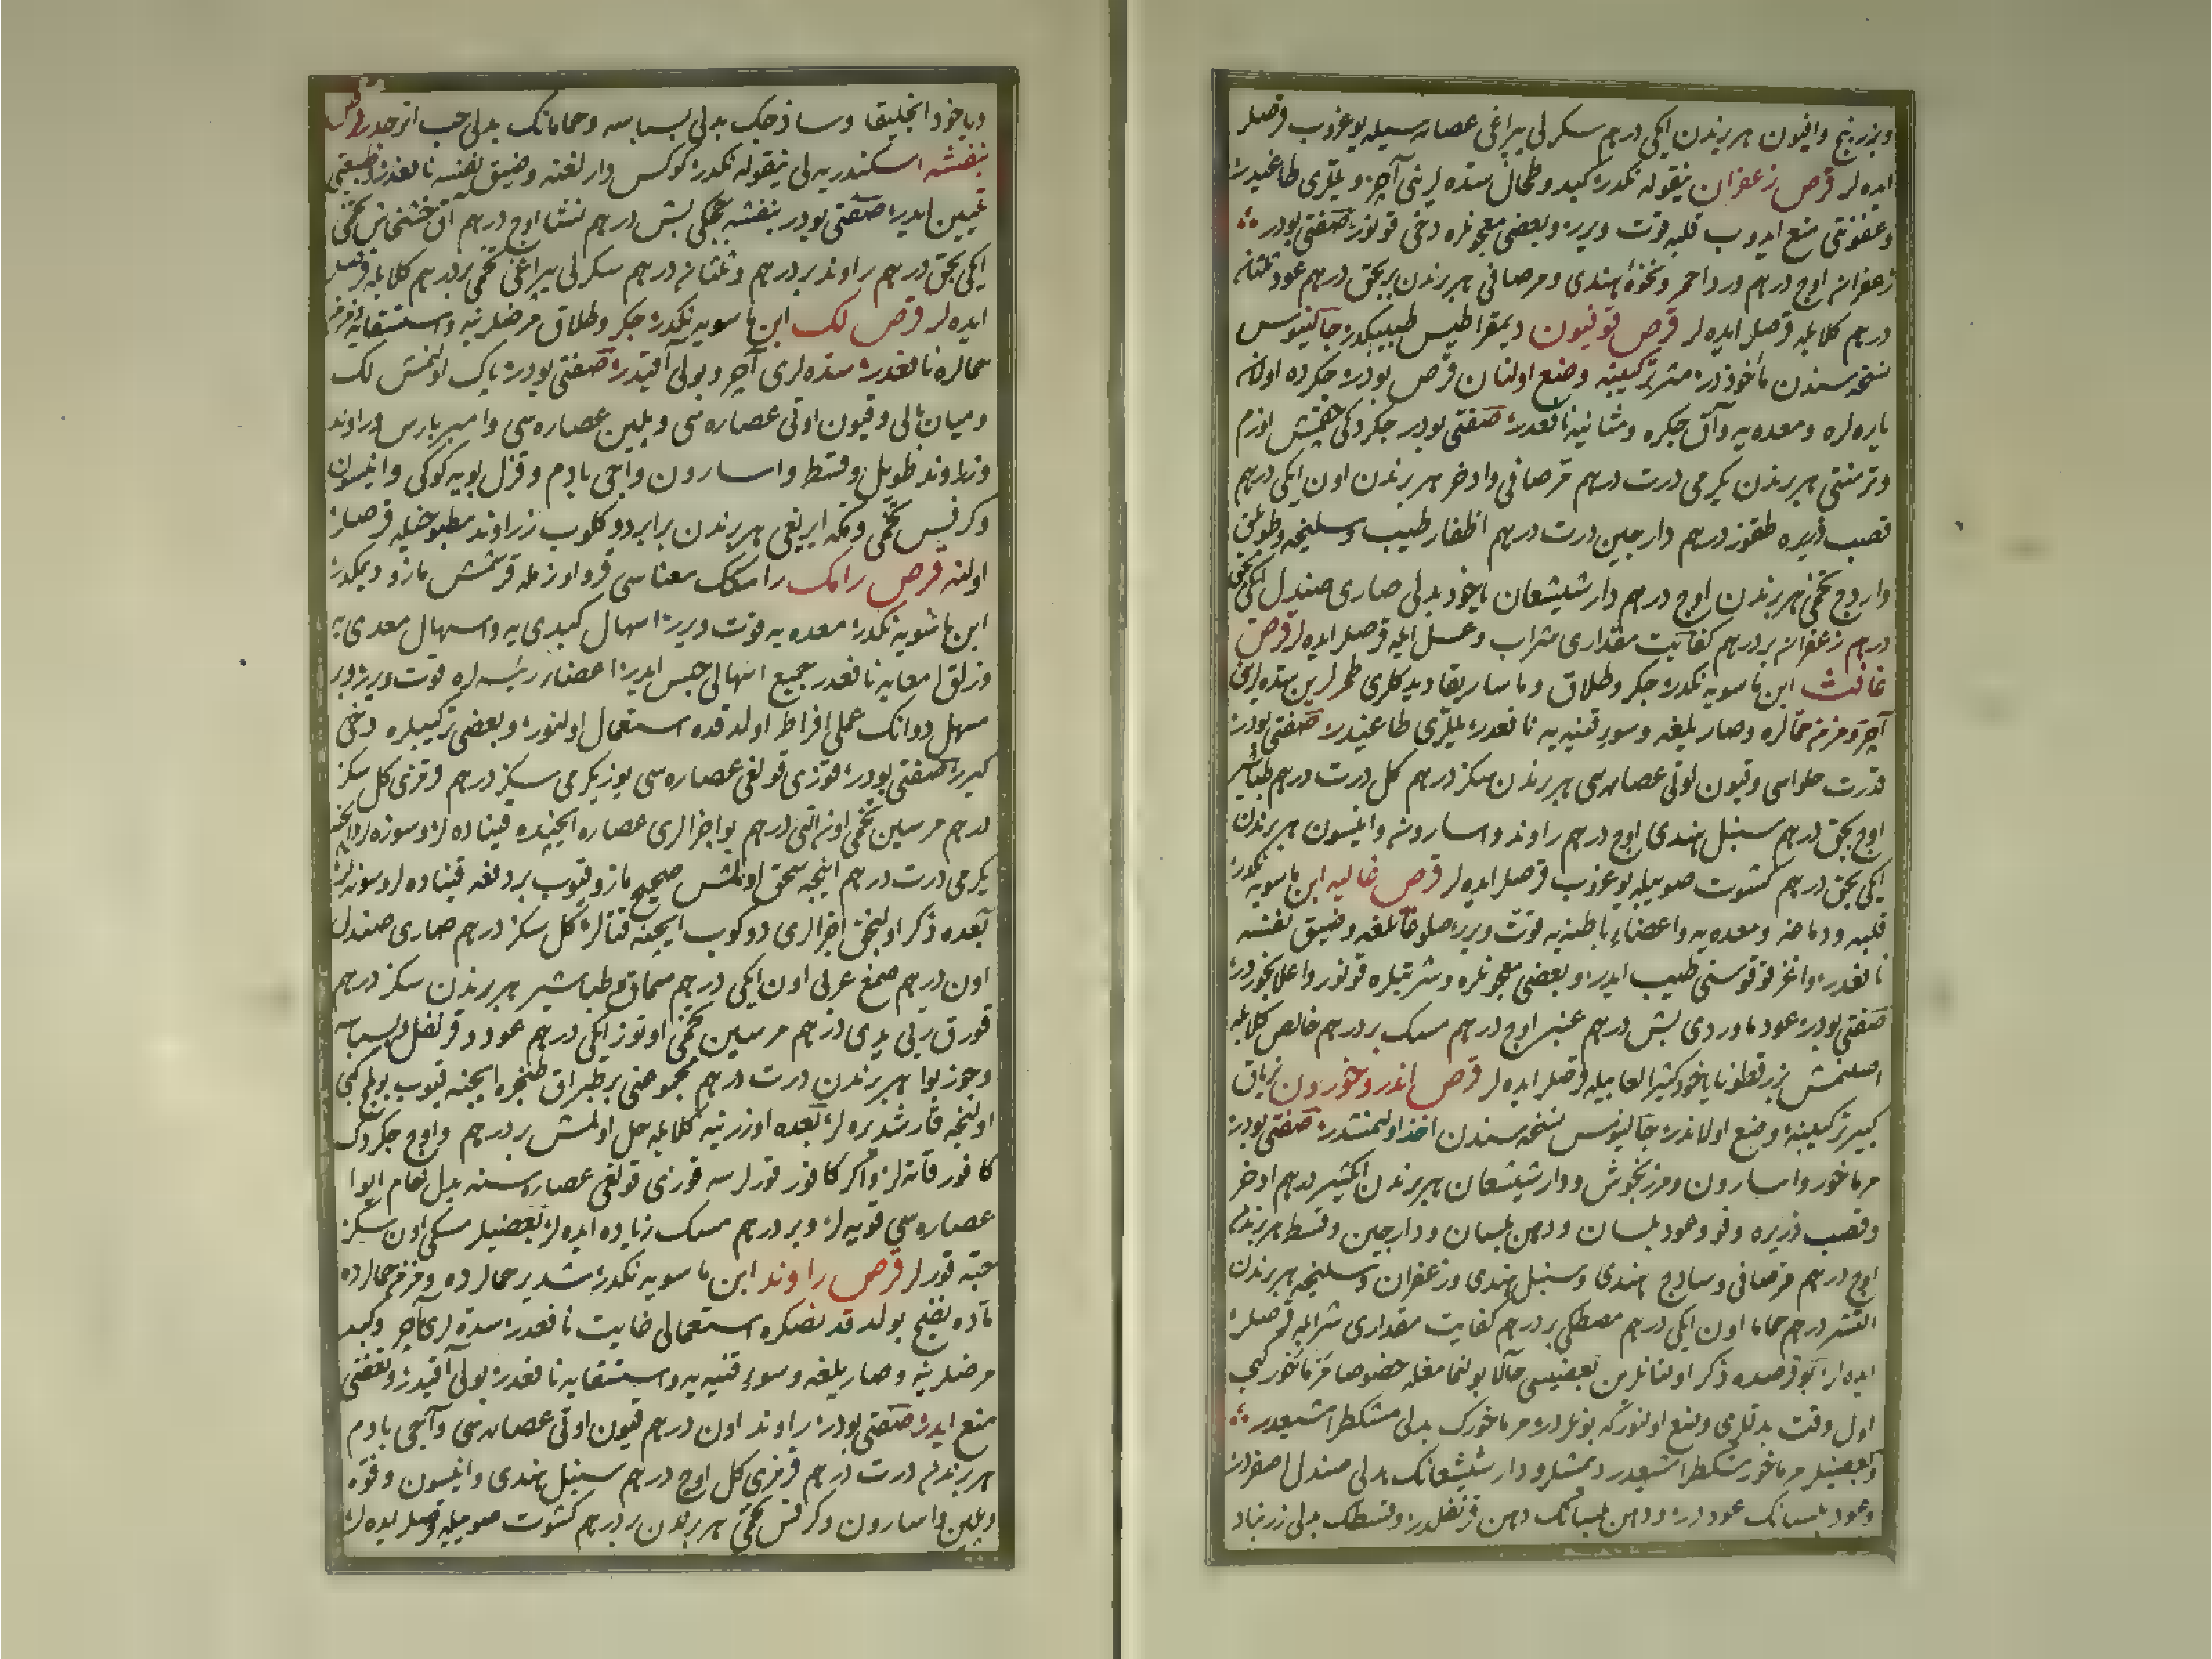 وبزر بنج وافيون هر برندن ايكى درهم سكرلى يپراغى عصاره سيله يوغروب قرصلر
ايده لر قرص زعفران نيقوله نكدر كبد وطحال سده لرينى آچر ويللرى طاغيدر
وعفونتى منع ايدوب قلبه قوت ويرر وبعضى معجونلره دخى قونور صفتى بودر
زعفران اوچ درهم ورد احمر هندى ومر صافى هر برندن بر بچق درهم عود ثلثان
درهم كلابله قرصلر ايده لر قرص قوليون ديمقراطيس طبيبكدر جالينوس
نسخه سندن مأخوذدر تركيبنه وضع اولنان قرص بودر جكرده اولان
ياره لره ومعده يه وآق جكره ومثانه يه نافعدر صفتى بودر جكردكى چقمش اوزم
وترمنتى هر برندن يكرمى درت درهم مر صافى واذخر هر برندن اون ايكى درهم
قصب ذريره طقوز درهم دارچين درت درهم اظفار طيب وسليخه
هر برندن اوچ درهم دارشيشعان ياخود بدلى صارى صندل ايكى بچق
درهم زعفران بر درهم كفايت مقدارى شراب وعسل ايله قرصلر ايده لر قرص
غافث ابن ماسويه نكدر جكر وطلاق وماساريقا ديدكلرى طمرلرين سده لرين
آچر ومزمن حمالره وصارىلغه وسوء قنيه يه نافعدر يللرى طاغيدر صفتى بودر
قدرت حلواسى وقيون اوتى عصاره سى هر برندن سكز درهم كل درت درهم طباشير
اوچ بچق درهم سنبل هندى اوچ درهم راوند واسارون وانيسون هر برندن
ايكى بچق درهم كشوت صوييله يوغروب قرصلر ايده لر قرص غاليه ابن ماسويه نكدر
قلبه ودماغه ومعده يه واعضاء باطنه يه قوت ويرر صلوقانلغه وضيق نفسه
نافعدر واغز قوقوسنى طيب ايدر وبعضى معجونلره وشربتلره قونور واعلا بخوردر
صفتى بودر عود ماوردى بش درهم عنبر اوچ درهم مسك بر درهم خالص كلابله
اصلنمش بزر قطونا ياخود كثيرا لعابيله قرصلر ايده لر قرص اندروخورون ترياق
كبير تركيبنه وضع اولانندر جالينوس نسخه سندن اخذ اولنمشدر صفتى بودر
مرماخور واسارون ومرزنجوش ودارشيشعان هر برندن ايكيشر درهم اذخر
وقصب ذريره وفو وعود بلسان ودهن بلسان ودارچين وقسط هر برندن
اوچ درهم مر صافى وساذج هندى وسنبل هندى وزعفران وسليخه هر برندن
التشر درهم حماما اون ايكى درهم مصطكى بر درهم كفايت مقدارى شرابله قرصلر
ايده لر بو قرصده ذكر اولنانلردن بعضيسى حالا بولنمامغله خصوصا مرماخور كبى
اول وقت بدللرى وضع اولنور كه بونلردر مرماخورك بدلى مشكطرامشيعدر
وبعضيلر مرماخور مشكطرامشيعدر ديمشلر ودارشيشعانك بدلى صندل اصفردر
وعود بلسانك عوددر ودهن بلسانك دهن قرنفلدر وقسطك بدلى زرنباد
وياخود انجليقا وساذجك بدلى بسباسه وحمامانك بدلى حب اترجدر قرص
بنفشه اسكندريه لى نيقوله نكدر كوكس دارلغنه وضيق نفسه نافعدر وطبيعتى
تليين ايدر صفتى بودر بنفشه چچكى بش درهم نشا اوچ درهم آق خشخاش تخمى
ايكى بچق درهم راوند بر درهم وثلثان درهم سكرلى يپراغى تخمى بر درهم كلابله قرصلر
ايده لر قرص لك ابن ماسويه نكدر جكر وطلاق مرضلرينه واستسقايه ومزمن
حمالره نافعدر سده لرى آچر وبولى آقيدر صفتى بودر پاك اولنمش لك
وميان بالى وقيون اوتى عصاره سى وپلين عصاره سى وامبرباريس وراوند
وزراوند طويل وقسط واسارون وآجى بادم وقزل بويه كوكى وانيسون
وكرفس تخمى ومكه ايريغى هر برندن برابر دوكلوب زراوند مطبوخيله قرصلر
اولنه قرص رامك رامكك معناسى قوا وزمله قرشمش مازو ديمكدر
ابن ماسويه نكدر معده يه قوت ويرر اسهال كبدى يه واسهال معدى يه
وزلق امعايه نافعدر جميع اسهالى حبس ايدر اعضاء رئيسه لره قوت ويرر
مسهل دوانك عملى افراط اولدقده استعمال اولنور وبعضى تركيبلره دخى
كيرر صفتى بودر قوزى قولغى عصاره سى يوز يكرمى سكز درهم وقرمزى كل سكز
درهم مرسين تخمى اون التى درهم بو اجزالرى عصاره ايچنده قينادالر وسوزه لر وايچنه
يكرمى درت درهم اينجه سحق اولنمش صحيح مازو قيوب بر دفعه قينادالر وسوزه لر
بعده ذكر اولنه جق اجزالرى دوكوب ايچنه قتالر كل سكز درهم صارى صندل
اون درهم صمغ عربى اون ايكى درهم سماق وطباشير هر برندن سكز درهم
قورق ربى يدى درهم مرسين تخمى اوتوز ايكى درهم عود وقرنفل وبسباسه
وجوز بوا هر برندن درت درهم مجموعنى بر طپراق طنجره ايچنه قيوب كبى
اولنجه قارشديره لر بعده اوزرينه كلابله حل اولمش بر درهم واوچ جكردك
كافور قاتلر واكر كافور قورلرسه قوزى قولغى عصاره سنه بدل خام ايوا
عصاره سى قويه لر وبر درهم مسك زياده ايده لر بعضيلر مسكى اون سكز
حبه قورلر قرص راوند ابن ماسويه نكدر شدير حمالرده ومزمن حمالرده
ماده نضج بولدقدنصكره استعمالى غايت نافعدر سده لرى آچر وكبد
مرضلرينه وصارىلغه وسوء قنيه يه واستسقايه نافعدر بولى آقيدر وتعفنى
منع ايدر صفتى بودر راوند اون درهم قيون اوتى عصاره سى وآجى بادم
هر برندن درت درهم قرمزى كل اوچ درهم سنبل هندى وانيسون وفوه
وپلين واسارون وكرفس تخمى هر برندن بر درهم كشوت صوييله قرصلر ايده لر